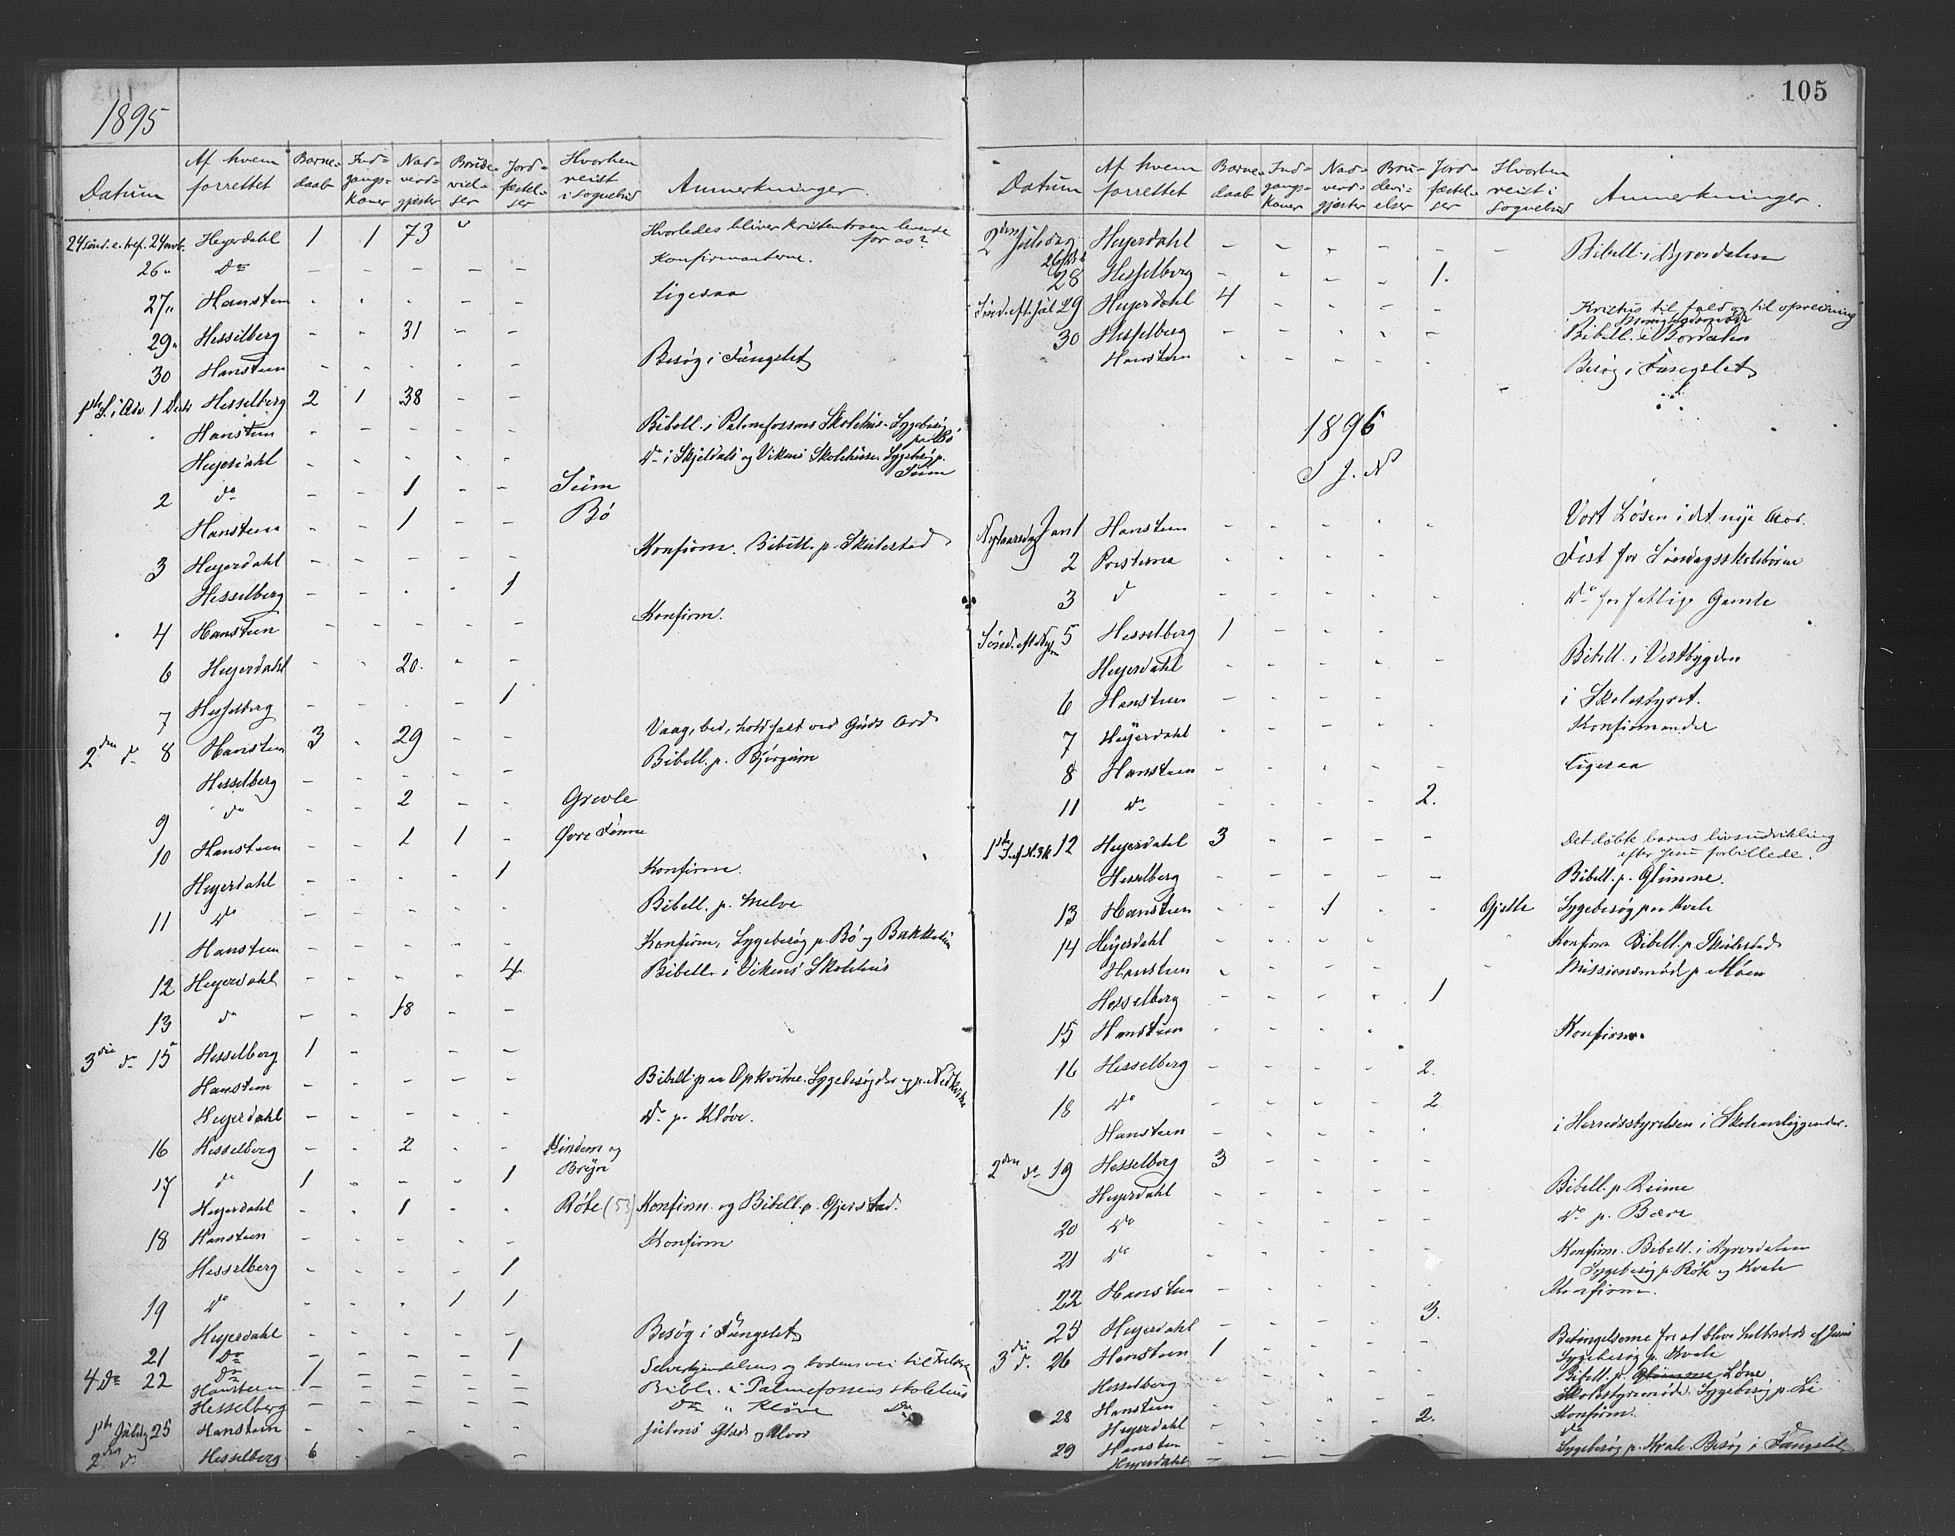 1895
Datum Af hvem forrettet Barne-daab Ind-gangs-koner Nad-verd-gjester Brude-viel-ser Jord-fæstel-ser Hvorhen reist i Sognebud Anmerkninger.
24 Sönd. e. tref. 24 novb. Heyerdahl 1 1 73 Hvorledes bliver kristentroen levende for os?
26 " Do – – – – – – Konfirmanterne.
27 " Hansteen Ligesaa
29 " Hesselberg 31
30 Hansteen Besøg i Fængslet
1ste S. i Adv. 1 Decbr Hesselberg 2 1 38
Hansteen Bibell. i Palmefossens Skolehus. Sygebesøg paa Bø
Heyerdahl Do i Skjeldals og Vikens Skolehuse. Sygebesøg p. Seim
2 do 1 Seim
Hansteen 1 Bø
3 Heyerdahl Konfirm. Bibell. p. Skulestad
Hesselberg 1
4 Hansteen Konfirm.
6 Heyerdahl 20.
7 Hesselberg 1
2den do 8 Hansteen 3 29 Vaag, bed, hold fast ved Guds Ord
Hesselberg Bibell. p. Bjørgum
9 do 2 Grevle
10 Hansteen 1 1 Øvre
Heyerdahl 1 Konfirm.
11 do Bibell. p. Melve
Hansteen Konfirm, Sygebesøg p. Bø og
12 Heyerdahl 4 Bibell. i Vikens Skolehus
13 do 18
3die do 15 Hesselberg 1
Hansteen Bibell. paa Opkvitne. Sygebesøg der og p. Nedkvitne
Heyerdahl Do p. Kløve.
16 Hesselberg 2 Mindem og Bryn
17 do 1 1
Heyerdahl 1 Røte (53) Konfirm. og Bibell. p. Gjerstad.
18 Hansteen Konfirm
Hesselberg 1
19 do 1 1
Heyerdahl Besøg i Fængslet
21 Do 1
4 Do 22 Do 1 Selverkjendelsens og bodens vei til Frelse
Hansteen Bibl. i Palmefossens skolehus
Hesselberg Do " Kløve Do
1ste Juledg 25 Hansteen Julens Glæde og Alvor
2den do Hesselberg 6
105
Datum Af hvem forrettet Barne-daab Ind-gangs-koner Nad-verd-gjester Bru-devi-elser Jord-fæstel-ser Hvorhen reist i Sognebud Anmerkninger.
2den Juledag 26 Heyerdahl Bibell. i Dyrvedalen
28 Hesselberg 1.
Sönd. eft. Jul 29 Heyerdahl 4 Kristus til fald og til opreisning
30 Hesselberg Bibell. i Bordalen
Hansteen Besøg i Fængslet
1896
I J. N
Nytaarsdag Jan 1 Hansteen Vort Løsen i det nye Aar.
2 Presterne Fest for Søndagsskolebørn
3 do Do for fattige Gamle
Sönd. eft. Nyt 5 Hesselberg 1
Heyerdahl Bibell. i Vestbygden
6 Hansteen i Skolestyret.
7 Heyerdahl Konfirmander
8 Hansteen Ligesaa
11 do 2.
1ste S. ef. H. 3 K 12 Heyerdahl 3 Det døbte barns livsudvikling efter Jesu forbillede.
Hesselberg Bibell. p. Glimme.
13 Hansteen 1 Gjelle Sygebesøg paa Kvale
14 Heyerdahl Konfirm Bibell. p. Skulestad
Hansteen Missionsmöde p. Moen
Hesselberg 1
15 Hansteen Konfirm.
16 Hesselberg 2.
18 do 2
Hansteen i Herredsstyrelsen i Skoleanliggender.
2den do 19 Hesselberg 3
Heyerdahl Bibell. p. Reime
20 do Do p. Bære
21 do Konfirm. Bibell. i Dyrvedalen Sygebesøg p. Røte og Kvale
22 Hansteen Konfirm.
25 Heyerdahl 3.
3die do. 26 Hansteen 1 Betingelserne for at blive helbredede af Jesus Sygebesøg p. Kvale
Hesselberg Bibell. p. Glimme Løne
28 Hansteen 2. Skolestyremøde. Sygebesøg p. Li
Heyerdahl Konfirm.
29 Hansteen do
Heyerdahl Sygebesøg p. Kvale. Besøg i Fængslet